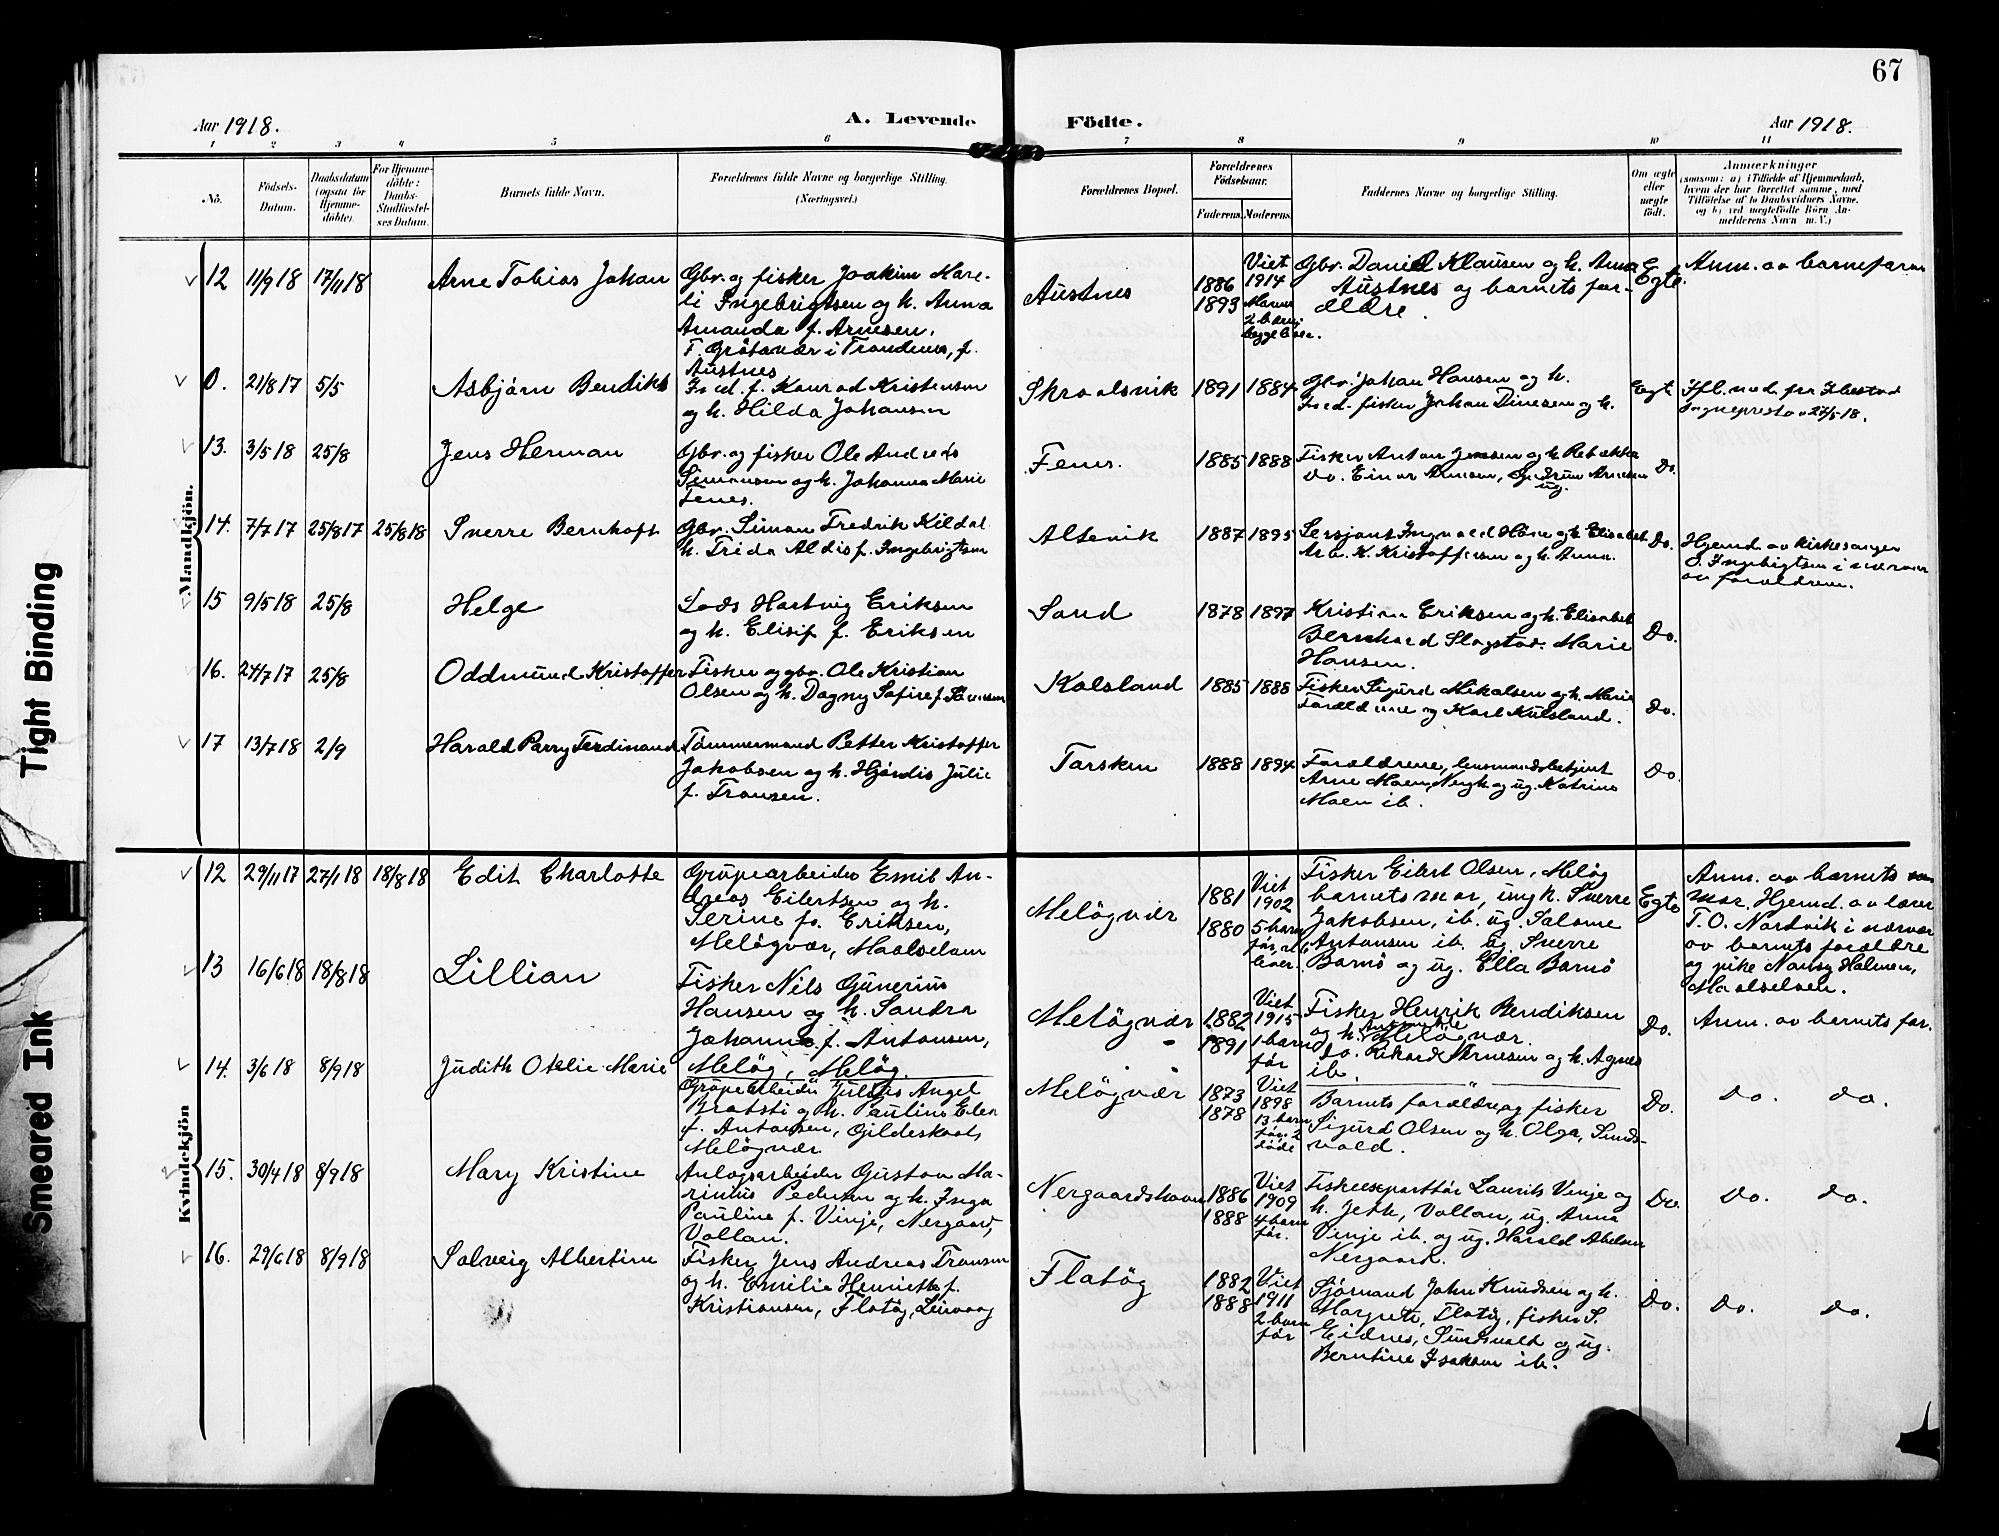 67
Aar 1918.
A. Levende
Födte.
Aar 1918.
1 2 3 4 5 6 7 8 9 10 11
No.
Födsels-
Datum.
Daabsdatum
(ogsaa for
Hjemme-
döbte).
For Hjemme-
döbte:
Daabs-
Stadfæstel-
ses Datum.
Barnets fulde Navn.
Forældrenes fulde Navne og borgerlige Stilling.
(Næringsvei.)
Forældrenes Bopæl.
Forældrenes
Födselsaar.
Faderens.
Moderens.
Faddernes Navne og borgerlige Stilling.
Om ægte
eller
uægte
födt.
Anmærkninger
(saasom: a) i Tilfælde af Hjemmedaab,
hvem der har forrettet samme, med
Tilföielse af to Daabsvidners Navne,
og b) ved uægtefödte Börn An-
melderens Navn m. V.)
Mandkjön.
12 11/9 18 17/11 18
Arne Tobias Johan
Gbr. og fisker Joakim Mare-
li Ingebrigtsen og h. Anna
Amanda f. Arnesen.
F. Grötavær i Trondenes, f.
Austnes
Austnes
1886
1893
Viet
1914
2 barn
begge lever.
Gbr. Daniel Klausen og h. Anna
Austnes og barnets for-
ældre.
Egte.
Anm. av barnefaren
0. 21/8 17 5/5
Asbjörn Bendikt
Ind. f. Konrad Kristensen
og h. Hilda Johansen
Skrolsvik
1891 1884
Gbr. Johan Hansen og h.
Ind. fisker Johan Dinesen og h.
Egt
Ifl. med. fra Ibestad
sogneprest av 27/5 18.
13. 3/5 18 25/8
Jens Herman
Gbr. og fisker Ole Andreas
Simonsen og h. Johanna Marie
Fenes.
Fenes.
1885 1888
Fisker Anton Jensen og h. Rebekka
Do. Einar Arnesen, Gudrun Arnesen
ug.
Do.
14. 7/7 17 25/8 17 25/8 18
Sverre Bernhoft
Gbr. Simon Fredrik Kildal
h. Frida Aldis f. Ingebrigtsen
Altevik
1887 1895
Sersjant Ingvald Höve og h. Elisabet
K. Kristoffersen og h. Anna.
Do.
Hjemd. av kirkesanger
J. Ingebrigtsen i nærvær
av forældrene.
15 9/5 18 25/8
Helge
Lods Hartvig Eriksen
og h. Elisif f. Eriksen
Sand
1878 1897
Kristian Eriksen og h. Elisabet
Bernhard Slogstad. Marie
Hansen.
Do.
16. 24/7 17 25/8
Oddmund Kristoffer
Fisker og gbr. Ole Kristian
Olsen og h. Dagny Sofire f.
Kolsland
1885 1888
Fisker Sigurd Mikalsen og h. Marie
Forældrene og Karl Kulsland.
Do.
17 13/7 18 2/9
Harald Parry Ferdinand
Tömmermand Petter Kristoffer
Jakobsen og h. Hjördis Julie
f. Fransen.
Torsken
1888 1894
Forældrene, lensmandsbetjent
Arne Moen, og ug. Katrine
Moen ib.
Do.
Kvindekjön
12 29/11 17 27/1 18 18/8 18
Edit Charlotte
Grubearbeider Emil An-
dreas Eilertsen og h.
Serine fo. Eriksen,
Melögvær, Maalselven
Melögvær
1881
1880
Viet
1902
5 barn
för, alle
lever.
Fisker Eilert Olsen, Melög
barnets mor, ung k. Sverre
Jakobsen, ib. ug. Salome
Antonsen ib. ug. Sverre
Barnö og ug. Ella Barnö
Egte
Anm. av barnets
Mor. Hjemd. av lærer
T. O. Nordvik i nærvær
av barnets forældre
og pike Nansy Holmen,
Maalselven.
13 16/6 18 18/8 18
Lillian
Fisker Nils Gunerius
Hansen og h. Sandra
Johanne f. Antonsen,
Melög, Melög.
Melögvær
1882
1891
Viet
1915
1 barn
för
Fisker Henrik Bendiksen
og h. Melögvær.
Do. Rikard Arnesen og h. Agnes
ib.
Do.
Anm. av barnets far.
14. 3/6 18 8/9 18
Judith Otelie Marie
Grubearbeider Julius Angel
Bratsti og h. Pauline Elen
f. Antonsen, Gildeskaal,
Melögvær
Melögvær
1873
1878
Viet
1898
13 barn
för. 2
döde
Barnets forældre og fisker
Sigurd Olsen og h. Olga, Sunds-
vold.
Do.
Do. Do.
15. 30/4 18 8/9 18
Mary Kristine
Anlegsarbeider Gustav Ma-
rinius Pedersen og h. Inga
Pauline f. Vinje, Nergaard,
Vollan.
Nergaardshavn
1886
1888
Viet
1909
4 barn
för.
Fiskeeksportför Laurits Vinje og
h. Jeth, Vollan, ug. Anna
Vinje ib. og ug. Harald Abelsen
Nergaard.
Do.
Do. Do.
16. 29/6 18 8/9 18
Solveig Albertine
Fisker Jens Andreas Fransen
og h. Emilie Henriette f.
Kristiansen, Flatög, Leirvaag
Flatög
1882
1888
Viet
1911
2 barn
för
Sjömand John Knudsen og h.
Margrete, Flatög, fisker S.
Eidnes, Sundsvold og ug.
Berntine Isaksen ib.
Do.
Do. Do.
Tight Binding
Smeared Ink